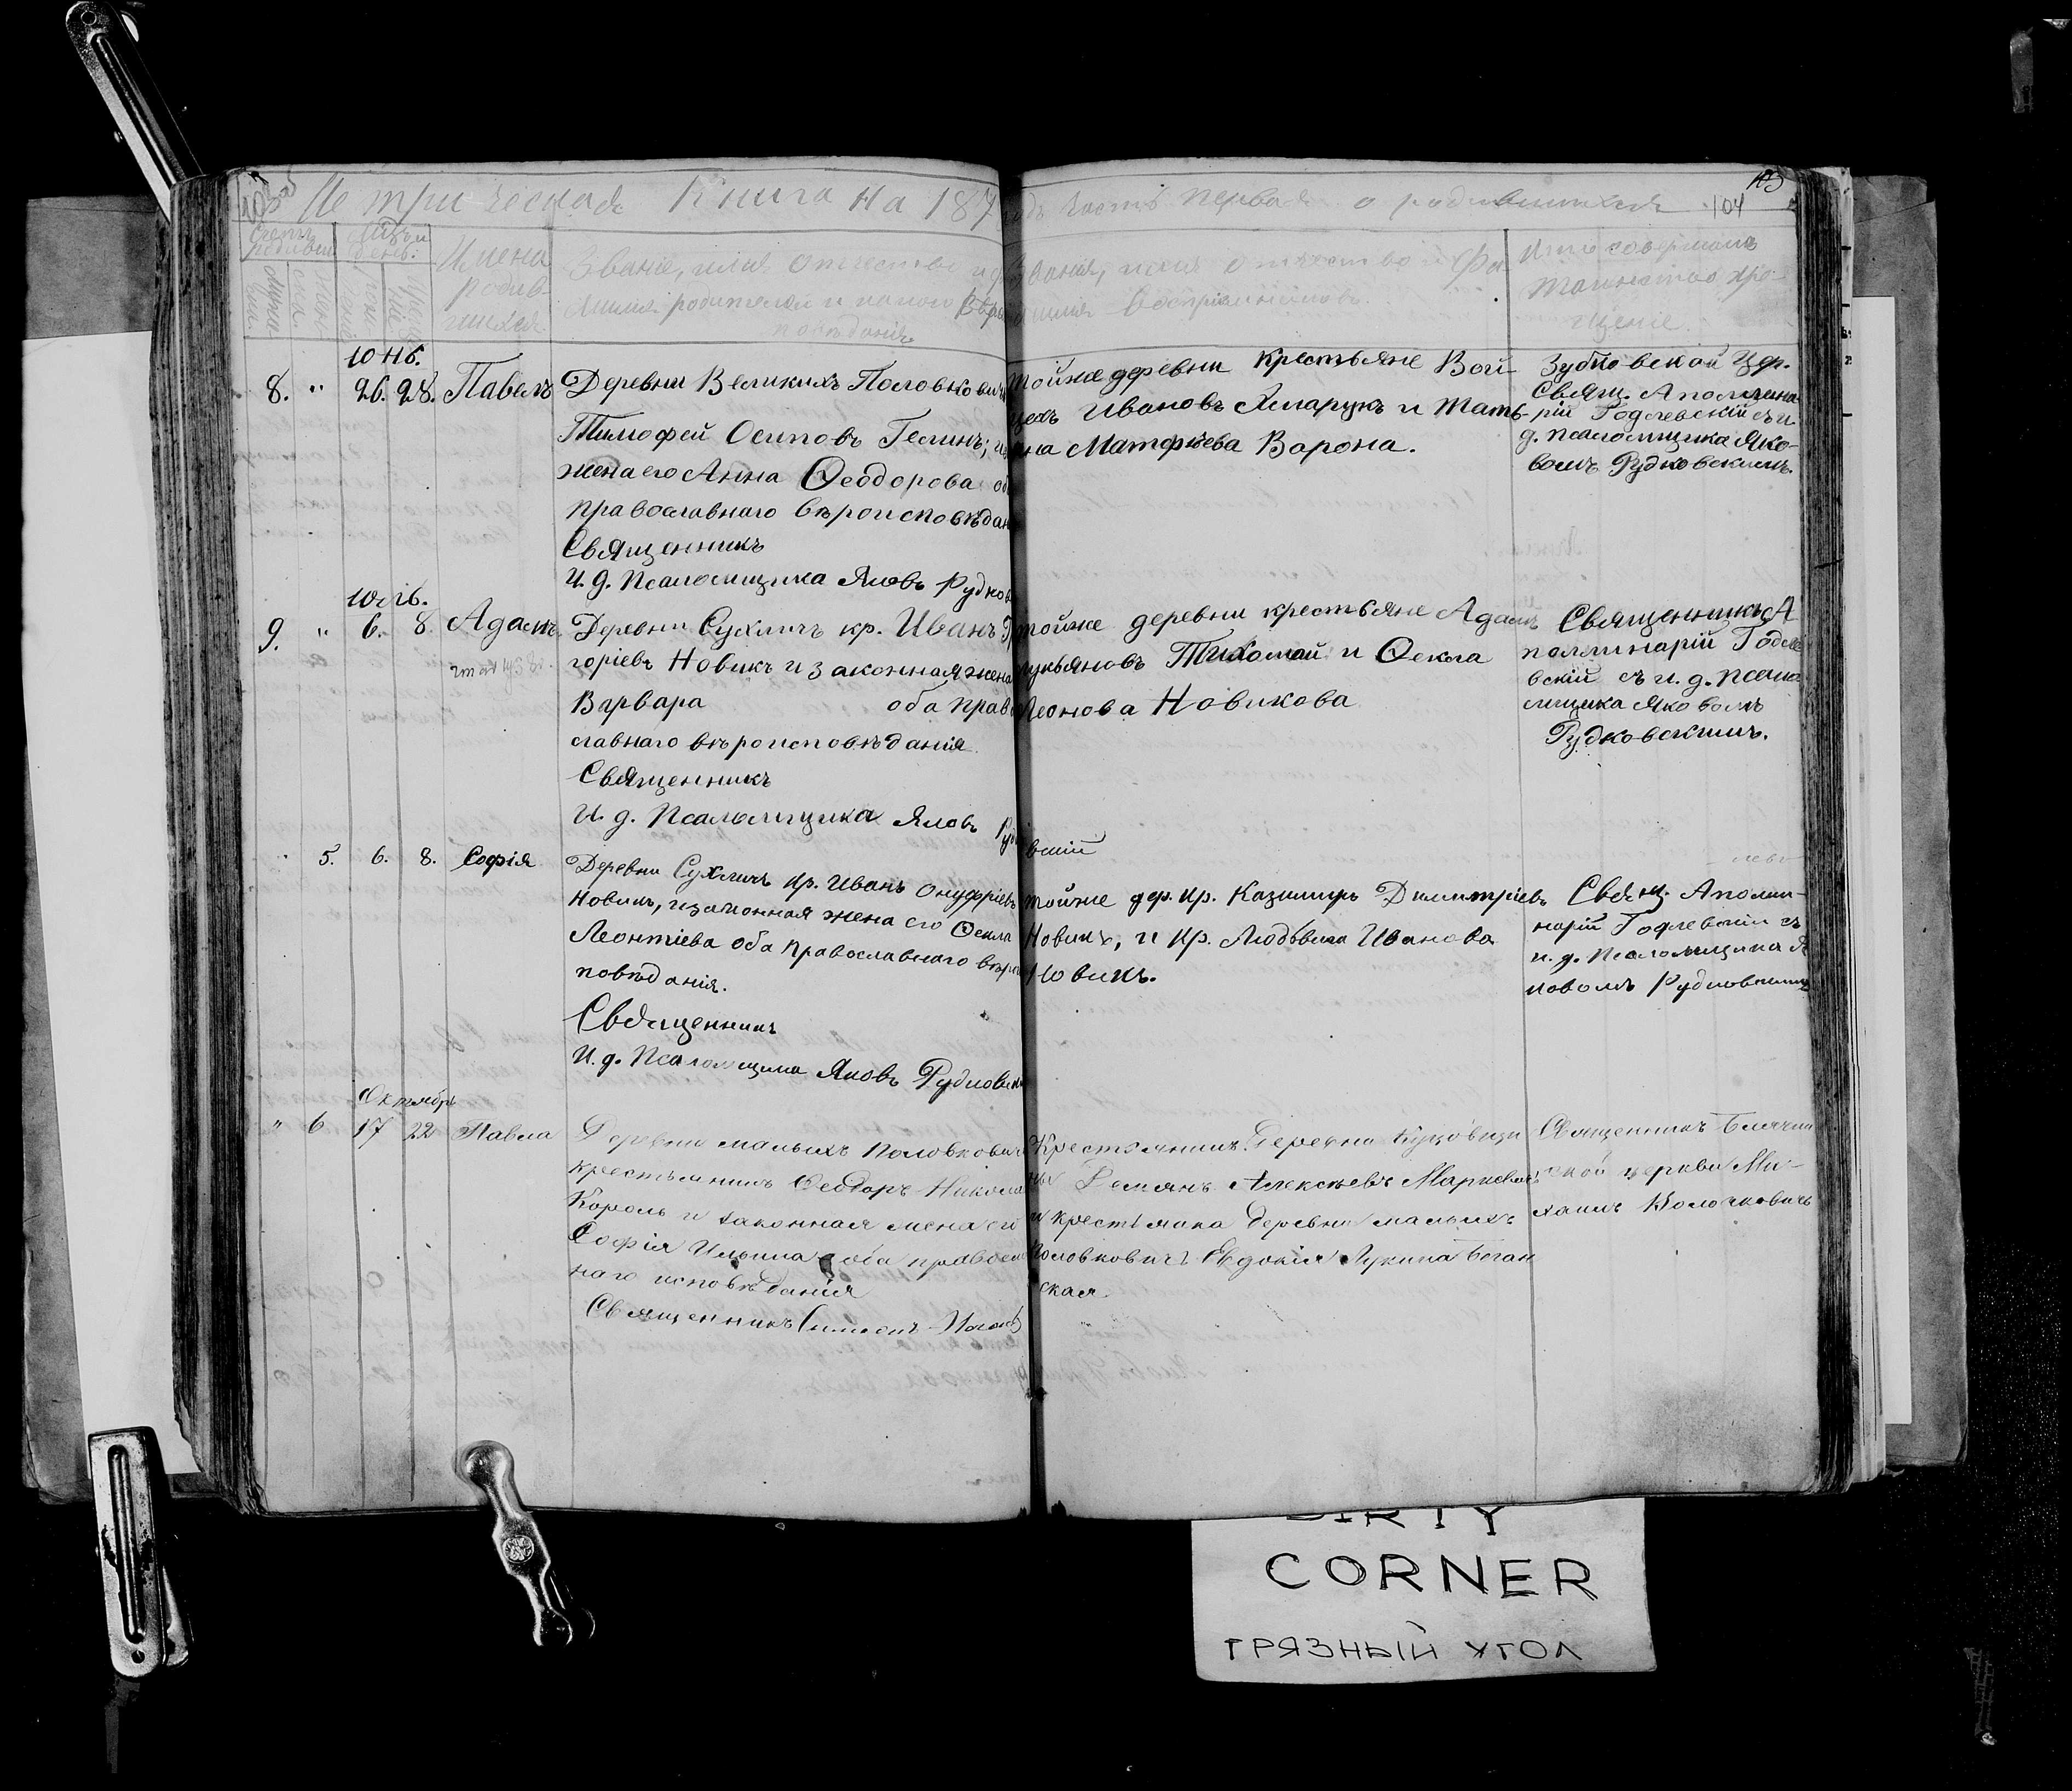 Метрическая Книга на 187
часть первая о родившихся
104
Имена
родив-
шихся
Званіе, имя отчество и
милія родителей и какого
повѣданія
совершалъ
таинство кре-
щенія
Юнь.
8. " 26. 28. Павелъ
Деревни Великихъ Половкович
Тимофей Осиповъ Гелинъ; и
жена его Анна Ѳеодорова об
православнаго вѣроисповѣдан
Священникъ
И. д. Псаломщика Яковъ Рудков
Тойже деревни крестьяне Вой-
цехъ Ивановъ Хмарукъ и Татья-
на Матфѣева Варона.
Зубковской Цер.
Свящ. Аполлина-
рій Годлевскій съ и.
д. псаломщика Яко-
вомъ Рудковскимъ.
Юль.
9. " 6. 8. Адамъ
Деревни Сухличъ кр. Иванъ Гр
горіевъ Новикъ и законная жена
Варвара оба прав
славнаго вѣроисповѣданія
Священникъ
И. д. Псаломщика Яковъ Руд
вскій
тойже деревни крестьяне Адамъ
Лукьяновъ Тихомай и Ѳекла
Леонова Новикова
Священникъ А
поллинарій Годле
вскій съ и. д. псало
мщика Яковомъ
Рудковскимъ.
5. 6. 8. Софія
Деревни Сухличъ кр. Иванъ Онуфріевъ
Новикъ, и законная жена его Ѳекла
Леонтіева оба православнаго вѣро
повѣданія.
Священникъ
И. д. Псаломщика Яковъ Рудковск
тойже дер. кр. Казимиръ Димитріевъ
Новикъ, и кр. Людовика Иванова
Новикъ.
Свящ. Аполли-
нарій Годлевскій съ
и. д. Псаломщика Я
ковомъ Рудковским
Октябрь
" 6 17 22 Павла
Деревни малыхъ Половкович
крестьянинъ Ѳеодоръ Никола
Король и законная жена его
Софія Ильина оба правосл
наго исповѣданія
Священникъ Симеонъ
Крестьянинъ Деревни
Демянъ Алексѣевъ Маркевичъ
и крестьянка деревни малыхъ
Половковичъ Евдокія Лукина Боган
ская
Священникъ
ской церкви Ми-
хаилъ
DIRTY
CORNER
ГРЯЗНЫЙ УГОЛ